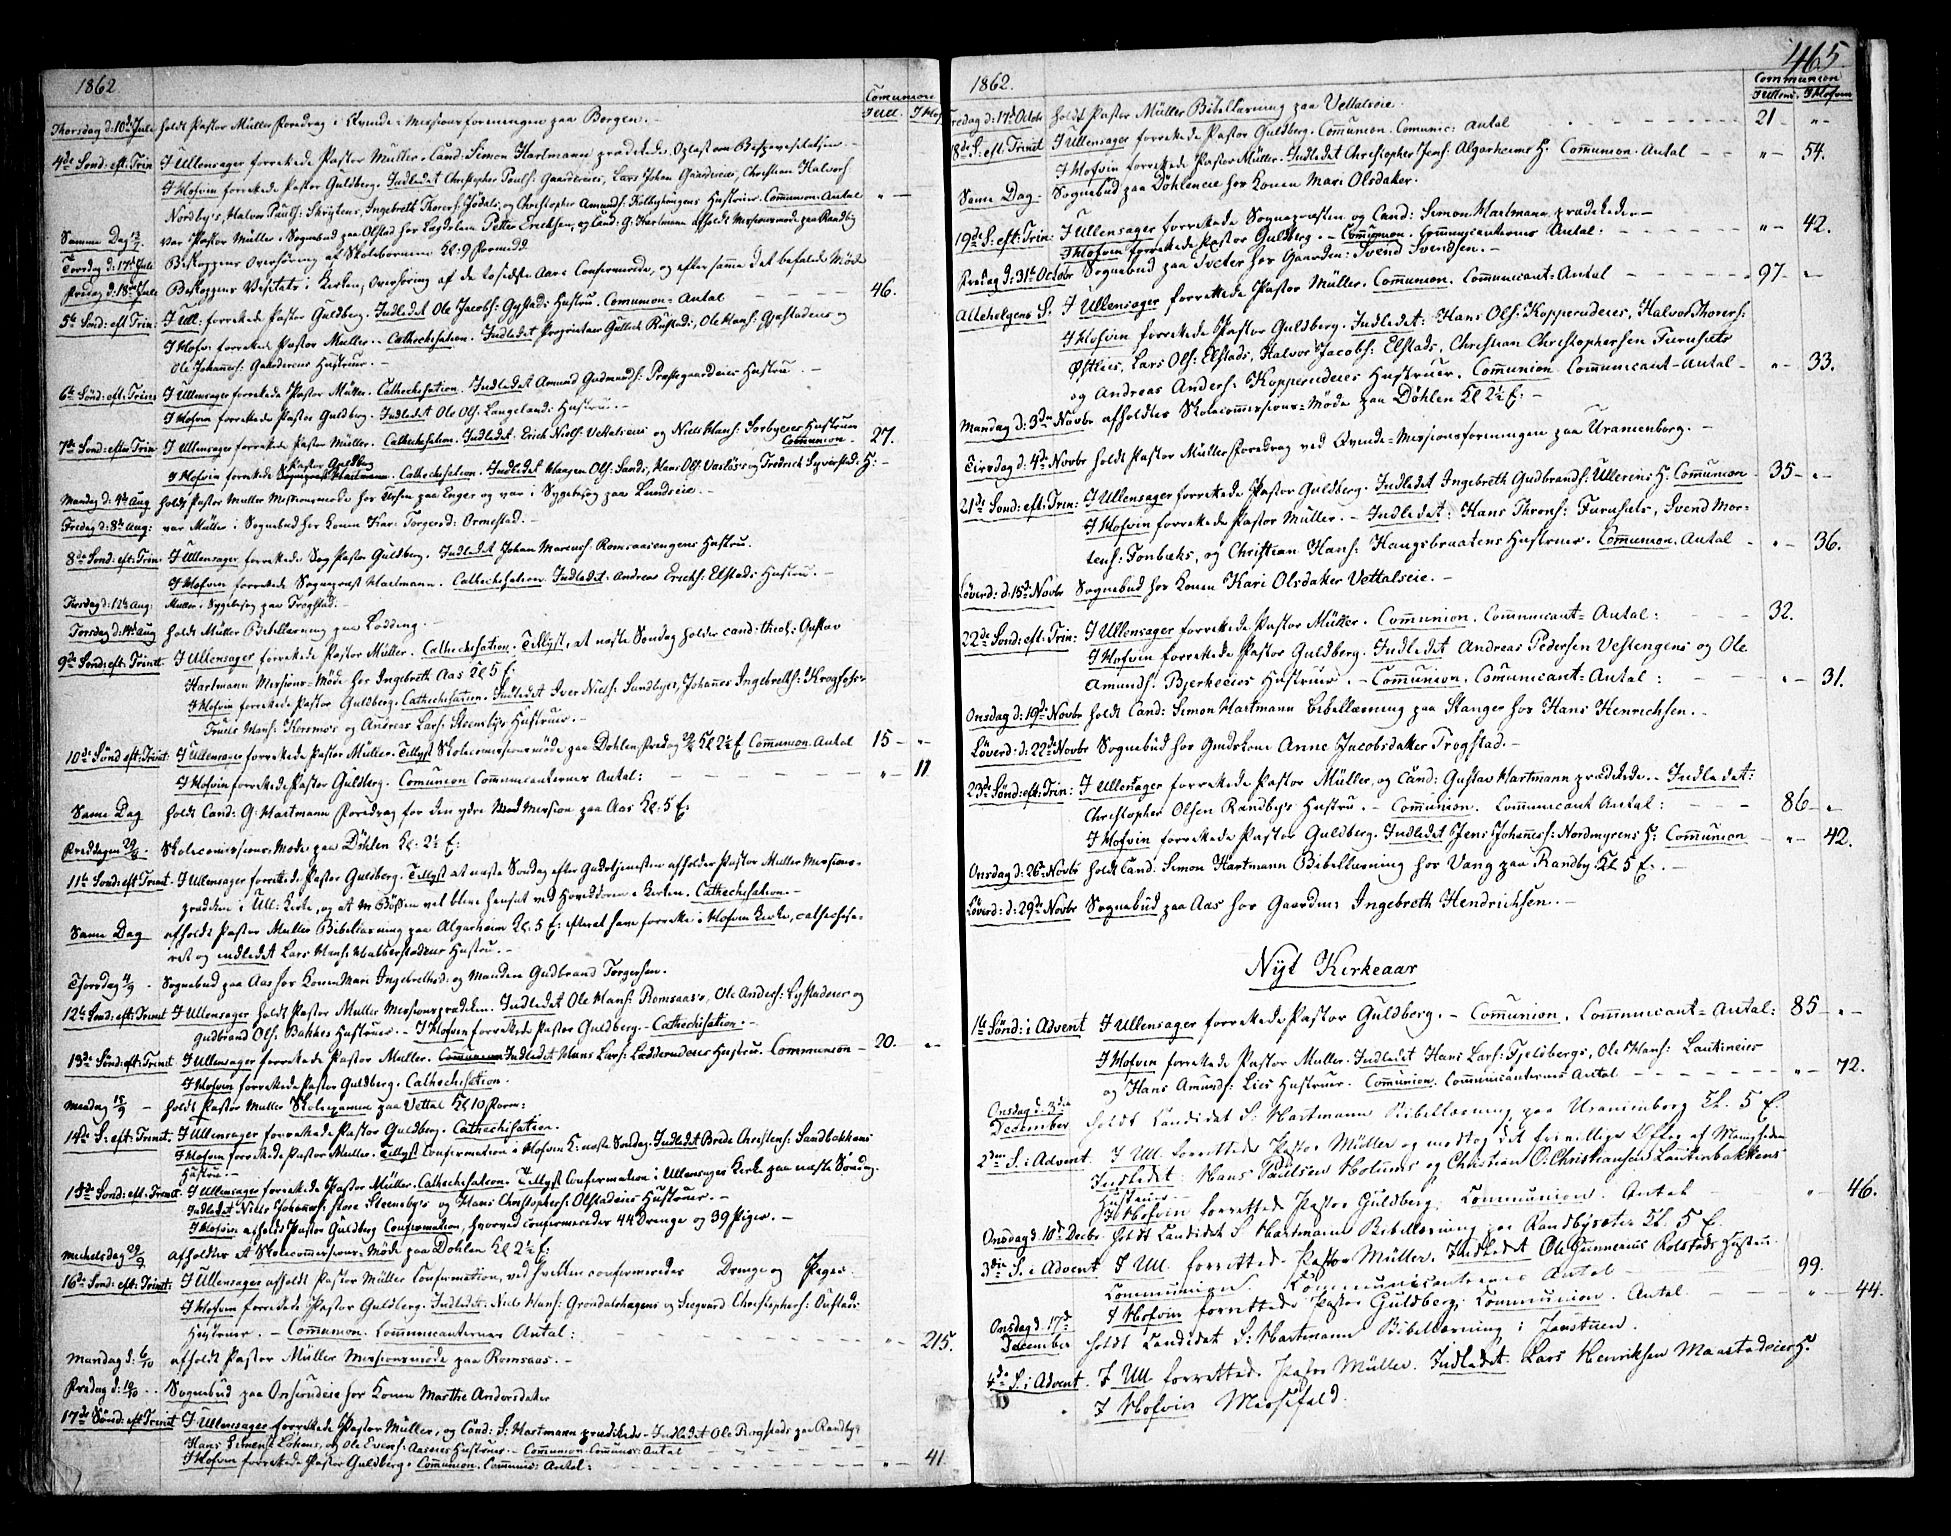 1862
Comunion
I Ull. I Hof
Thorsdag d: 10de Jule holdt Pastor Müller Foredrag i Qvinde-Missionsforeningen paa Borgen. -
4de Sönd: eft: Trin I Ullensager forrettede Pastor Müller. Cand: Simon Hartmann prædikede. Oplæst om Bispevisitatsen. -
I Hofvin forrettede Pastor Guldberg. Indledet Christopher Pauls: Gaardereies, Lars Johan Gaardereies, Christian Halvors:
Nordby's, Halvor Pauls: Skrytens, Ingebreth Thorers: Jödals, og Christopher Amunds: Kolbyhougens Hustruer. Communion: Antal „ -
Samme Dag 13/7 var Pastor Müller i Sognebud paa Olstad hos Lægdslem Petter Ericksen, og Cand: G: Hartmann afholdt Missionsmöde paa Randby
Torsdag d: 17de Jule Beskoppens Overhöring af Skolebörnene Kl: 9 Formidd.
Fredag d: 18de Jule Beskoppens Visitats i Kirken, Overhöring af de to sidste Aars Confirmerede, og efter samme det befalede Möde
5te Sönd: eft Trin: I Ull: forrettede Pastor Guldberg. Indledet Ole Jacobs: Gystads Hustru. Comunion: Antal - - 46.
I Hofv: forrettede Pastor Müller. Cathechisation. Indledet Proprietær Gullick Rustads, Ole Hans: Gjestadeies og
Ole Johannes: Gaardereies Hustruer. -
6te Sönd: eft: Trinit I Ullensager forrettede Pastor Müller. Cathechisation. Indledet Amund Gudmunds: Præstegaardeies Hustru. -
I Hofvin forrettede Pastor Guldberg. Indledet Ole Ols: Langelands Hustru. -
7de Sönd: efter Trin I Ullensager forrettede Pastor Müller. Cathechisation. Indledet Erick Niels: Vettalseies og Niels Hans: Sorbyeies Hustruer
Communion. 27.
I Hofvin forrettede Pastor Guldberg. Cathechisation. Indledet Haagen Ols: Sands, Hans Ols: Vaslös's og Fredrick Syverstads H: -
Mandag d: 4de Aug holdt Pastor Müller Missionsmöde hos Thron paa Enger og var i Sygebesög paa Lundseie. -
Fredag d: 8de Aug: var Müller i Sognebud hos Konen Kar: Torgersd: Ormestad. -
8de Sönd: eft: Trin I Ullensager forrettede Sog Pastor Guldberg. Indledet Johan Marens: Romsaasengens Hustru.
I Hofvin forrettede Sognepræst Hartmann. Cathechisation. Indledet: Andreas Ericks: Elstads Hustru. -
Tirsdag d: 12te Aug: Müller i Sygebesög paa Trogstad. -
Torsdag d: 14de Aug holdt Müller Bibellæsning paa Lodding. -
9de Sönd: eft: Trinit I Ullensager forrettede Pastor Müller. Cathechisation. Tillyst, at næste Søndag holder cand: theol: Gustav
Hartmann Missions-Möde hos Ingebreth Aas Kl 5 E:
I Hofvin forrettede Pastor Guldberg. Cathechisation. Indledet Iver Niels: Sundbyes, Johannes Ingebreths: Krogfoss-
Truls Hans: Kosmos og Andreas Lars: Steensby's Hustruer. -
10de Sönd: eft: Trinit: I Ullensager forrettede Pastor Müller. Tillyst Skolecomissionsmöde paa Dohlen Fredag 29/8 Kl 2½ E. Communion: Antal 15 - „
I Hofvin forrettede Pastor Guldberg. Comunion Communicanternes Antal: - - - - „ - 11
Same Dag holdt Cand: G. Hartmann Foredrag for den ydre Mission paa Aas Kl: 5 E:
Freddagen 29/8. Skolecomissions-Möde paa Döhlen Kl: 2½ E:
11te Sönd: eft: Trinit I Ullensager forrettede Pastor Guldberg. Tillyst at næste Söndag efter Gudstjenesten afholder Pastor Müller Missions-
prædiken i Ull: Kirke, og at en Bössen vel blive hensat ved Hoveddören i Kirken. Cathechisation. -
Same Dag afholdt Pastor Müller Bibellæsning paa Algarheim Kl. 5 E: efterat have forrettet i Hofvin Kirke, cathechise-
ret og indledet Lars Hans: Halberstadeies Hustru. -
Thorsdag 4/9 - Sognebud paa Aas hos Konen Mari Ingebrethsd: og Manden Gudbrand Torgersen.
12te Sönd: eft: Trinit I Ullensager holdt Pastor Müller Missionsprædiken. Indledet Ole Hans: Romsaas's, Ole Anders: Lystadeies og
Gudbrand Ols: Bakkes Hustruer. - I Hofvin forrettede Pastor Guldberg. - Cathechisation. -
13de Sönd: eft: Trinit I Ullensager forrettede Pastor Müller. Indledet Hans Lars: Ladderudeies Hustru. Communion - 20. „
I Hofvin forrettede Pastor Guldberg. Cathechisation.
Mandag 15/9 - holdt Pastor Müller Skoleexamen paa Vettal Kl 10 Form:
14de S: eft: Trinit: I Ullensager forrettede Pastor Guldberg. Cathechisation.
I Hofvin forrettede Pastor Müller. Tillyst Confirmation i Hofvin K: næste Söndag. Indledet Brede Christens: Sandbakkens
Hustru. -
15de Sönd: eft. Trinit: I Ullensager forrettede Pastor Müller. Cathechisation. Tillyst Confirmation i Ullensager Kirke paa næste Söndag.
Indledet Niels Johannes: store Steensby's og Hans Christophers: Olstadeies Hustruer. -
I Hofvin afholdt Pastor Guldberg Confirmation, hvorved confirmeredes 44 Drenge og 39 Piger. -
Michelsdag 29/9 afholdtes et Skolecommissions-Möde paa Dohlen Kl 2½ E:
16de Sönd: eft: Trinit: I Ullensager afholdt Pastor Müller Confirmation, ved hvilken confirmeredes Drenge og Piger.
I Hofvin forrettede Pastor Guldberg. Indledet: Niels Hans: Gröndalshagens og Seegvard Christophers: Onstads
Hustruer. - Communion. Communicanternes Antal: - - - - „ - 215.
Mandag d: 6/10 afholdt Pastor Müller Missionsmöde paa Romsaas. -
Fredag d: 10/10 - Sognebud paa Onsrudeie hos Konen Marthe Andersdatter
17de Sönd: eft Trinit I Ullensager forrettede Pastor Müller, og Cand: S: Hartmann prædikede - Indledet Ole Rogstads paa Randby,
Hans Simens: Löhens, og Ole Evens: Aaseies Hustruer - Communion. Comunic: Antal
I Hofvin forrettede Pastor Guldberg. Comunion. Communic: Antal: - - - - „ - 41
465
1862.
Communion
I Ullens. I Hofvin
Fredag d: 17de Octobr holdt Pastor Müller Bibellæsning paa Vettalseie.
18de S: eft: Trinit I Ullensager forrettede Pastor Guldberg. Comunion. Comunic: Antal - - - - 21 - „ -
I Hofvin forrettede Pastor Müller. Indledet Christopher Jens: Algarheims H: Comunion. Antal - - „ - 54.
Same Dag - Sognebud paa Döhleneie hos Konen Mari Olsdatter.
19de S: eft: Trin: I Ullensager forrettede Sognepræsten og Cand: Simon Hartmann prædikede. -
I Hofvin forrettede Pastor Guldberg. - Comunion. Communicanternes Antal: - - - - „ - 42.
Fredag d: 31te Octobr Sognebud paa Sveter hos Gaardm: Svend Svendsen. -
Allehelgens S. I Ullensager forrettede Pastor Müller. Comunion. Communicant-Antal - - - - 97 - „ -
I Hofvin forrettede Pastor Guldberg. Indledet: Hans Ols: Kopperudeies, Halvor Thorers:
Østbies, Lars Ols: Elstads, Halvor Jacobs: Elstads, Christian Christophersen Furusets
og Andreas Anders: Kopperudeies Hustruer. Comunion. Communicant-Antal - „ - 33.
Mandag d: 3die Novbr afholdtes Skolecommissions-Möde paa Döhlen Kl 2½ E: -
Tirsdag d: 4de Novbr holdt Pastor Müller Foredrag ved Qvinde-Missionsforeningen paa Uranienborg. -
21de Sönd: eft: Trin: I Ullensager forrettede Pastor Guldberg. Indledet Ingebreth Gudbrands: Ullerens H. Comunion - 35 - „ -
I Hofvin forrettede Pastor Müller. - Indledet: Hans Throns: Furusets, Svend Mor-
tens: Fonbæks, og Christian Hans: Haugsbraatens Hustruer. Comunion. Antal - „ - 36.
Löverd: d: 15de Novbr Sognebud hos Konen Kari Olsdatter Vettalseie. -
22de Sönd: eft: Trin: I Ullensager forrettede Pastor Müller. Communion. Communicant-Antal: - 32.
I Hofvin forrettede Pastor Guldberg. Indledet Andreas Pedersen Vestengens og Ole
Amunds: Bjerkeeies Hustruer. - Comunion. Comunicant-Antal: - - „ - 31.
Onsdag d: 19de Novbr holdt Cand: Simon Hartmann Bibellæsning paa Stanger hos Hans Henrichsen. -
Löverd: d: 22de Novbr Sognebud hos Gmdskone Anne Jacobsdatter Trogstad. -
23de Sönd: eft: Trin: I Ullensager forrettede Pastor Müller, og Cand: Gustav Hartmann prædikede. - Indledet:
Christopher Olsen Randby's Hustru. - Comunion. Communicant Antal: - 86 - „ -
I Hofvin forrettede Pastor Guldberg. Indledet Jens Johannes: Nordmyrens H: Comunion - „ - 42.
Onsdag d: 26de Novbr holdt Cand: Simon Hartmann Bibellæsning hos Vang paa Randby Kl 5 E. -
Löverd: d: 29de Novbr Sognebud paa Aas hos Gaardm: Ingebreth Hendrichsen. -
Nyt Kirkeaar
1ste Sönd: i Advent I Ullensager forrettede Pastor Guldberg. - Comunion. Communicant-Antal: 85 - „ -
I Hofvin forrettede Pastor Müller. Indledet Hans Lars: Fjeldbergs, Ole Hans: Lautineies
og Hans Amunds: Lies Hustruer. Comunion. Communicanternes Antal - - - - „ - 72.
Onsdag d. 3die
December holdt Candidat S: Hartmann Bibellæsning paa Uranienborg Kl. 5 E.
2den S. i Advent. I Ull. forrettede Pastor Müller og modtog det frivillige Offer af Menigheden
Indledet: Hans Paulsen Holums og Christian O. Christiansens Lauterbakkens
Hustruer -
I Hofvin forrettede Pastor Guldberg. Communion. Antal - „ - 46.
Onsdag d. 10de Decbr. holdt Candidat S. Hartmann Bibellæsning paa Randbysæter Kl. 5 E.
3die S. i Advent I Ull. forrettede Pastor Müller. Indledet Ole Gunnerius Rolstads Hustru.
Communion. Kommunicanternes Antal - 99.
I Hofvin forrettede Pastor Guldberg. Communion. Antal - - - „ - 44.
Onsdag d. 17de
December holdt Candidat S. Hartmann Bibellæsning i Jonstuen.
4de S. i Advent. I Ull forrettede Pastor Müller. Indledet: Lars Henriksen Maastadeies H.
" I Hofvin Messefald.